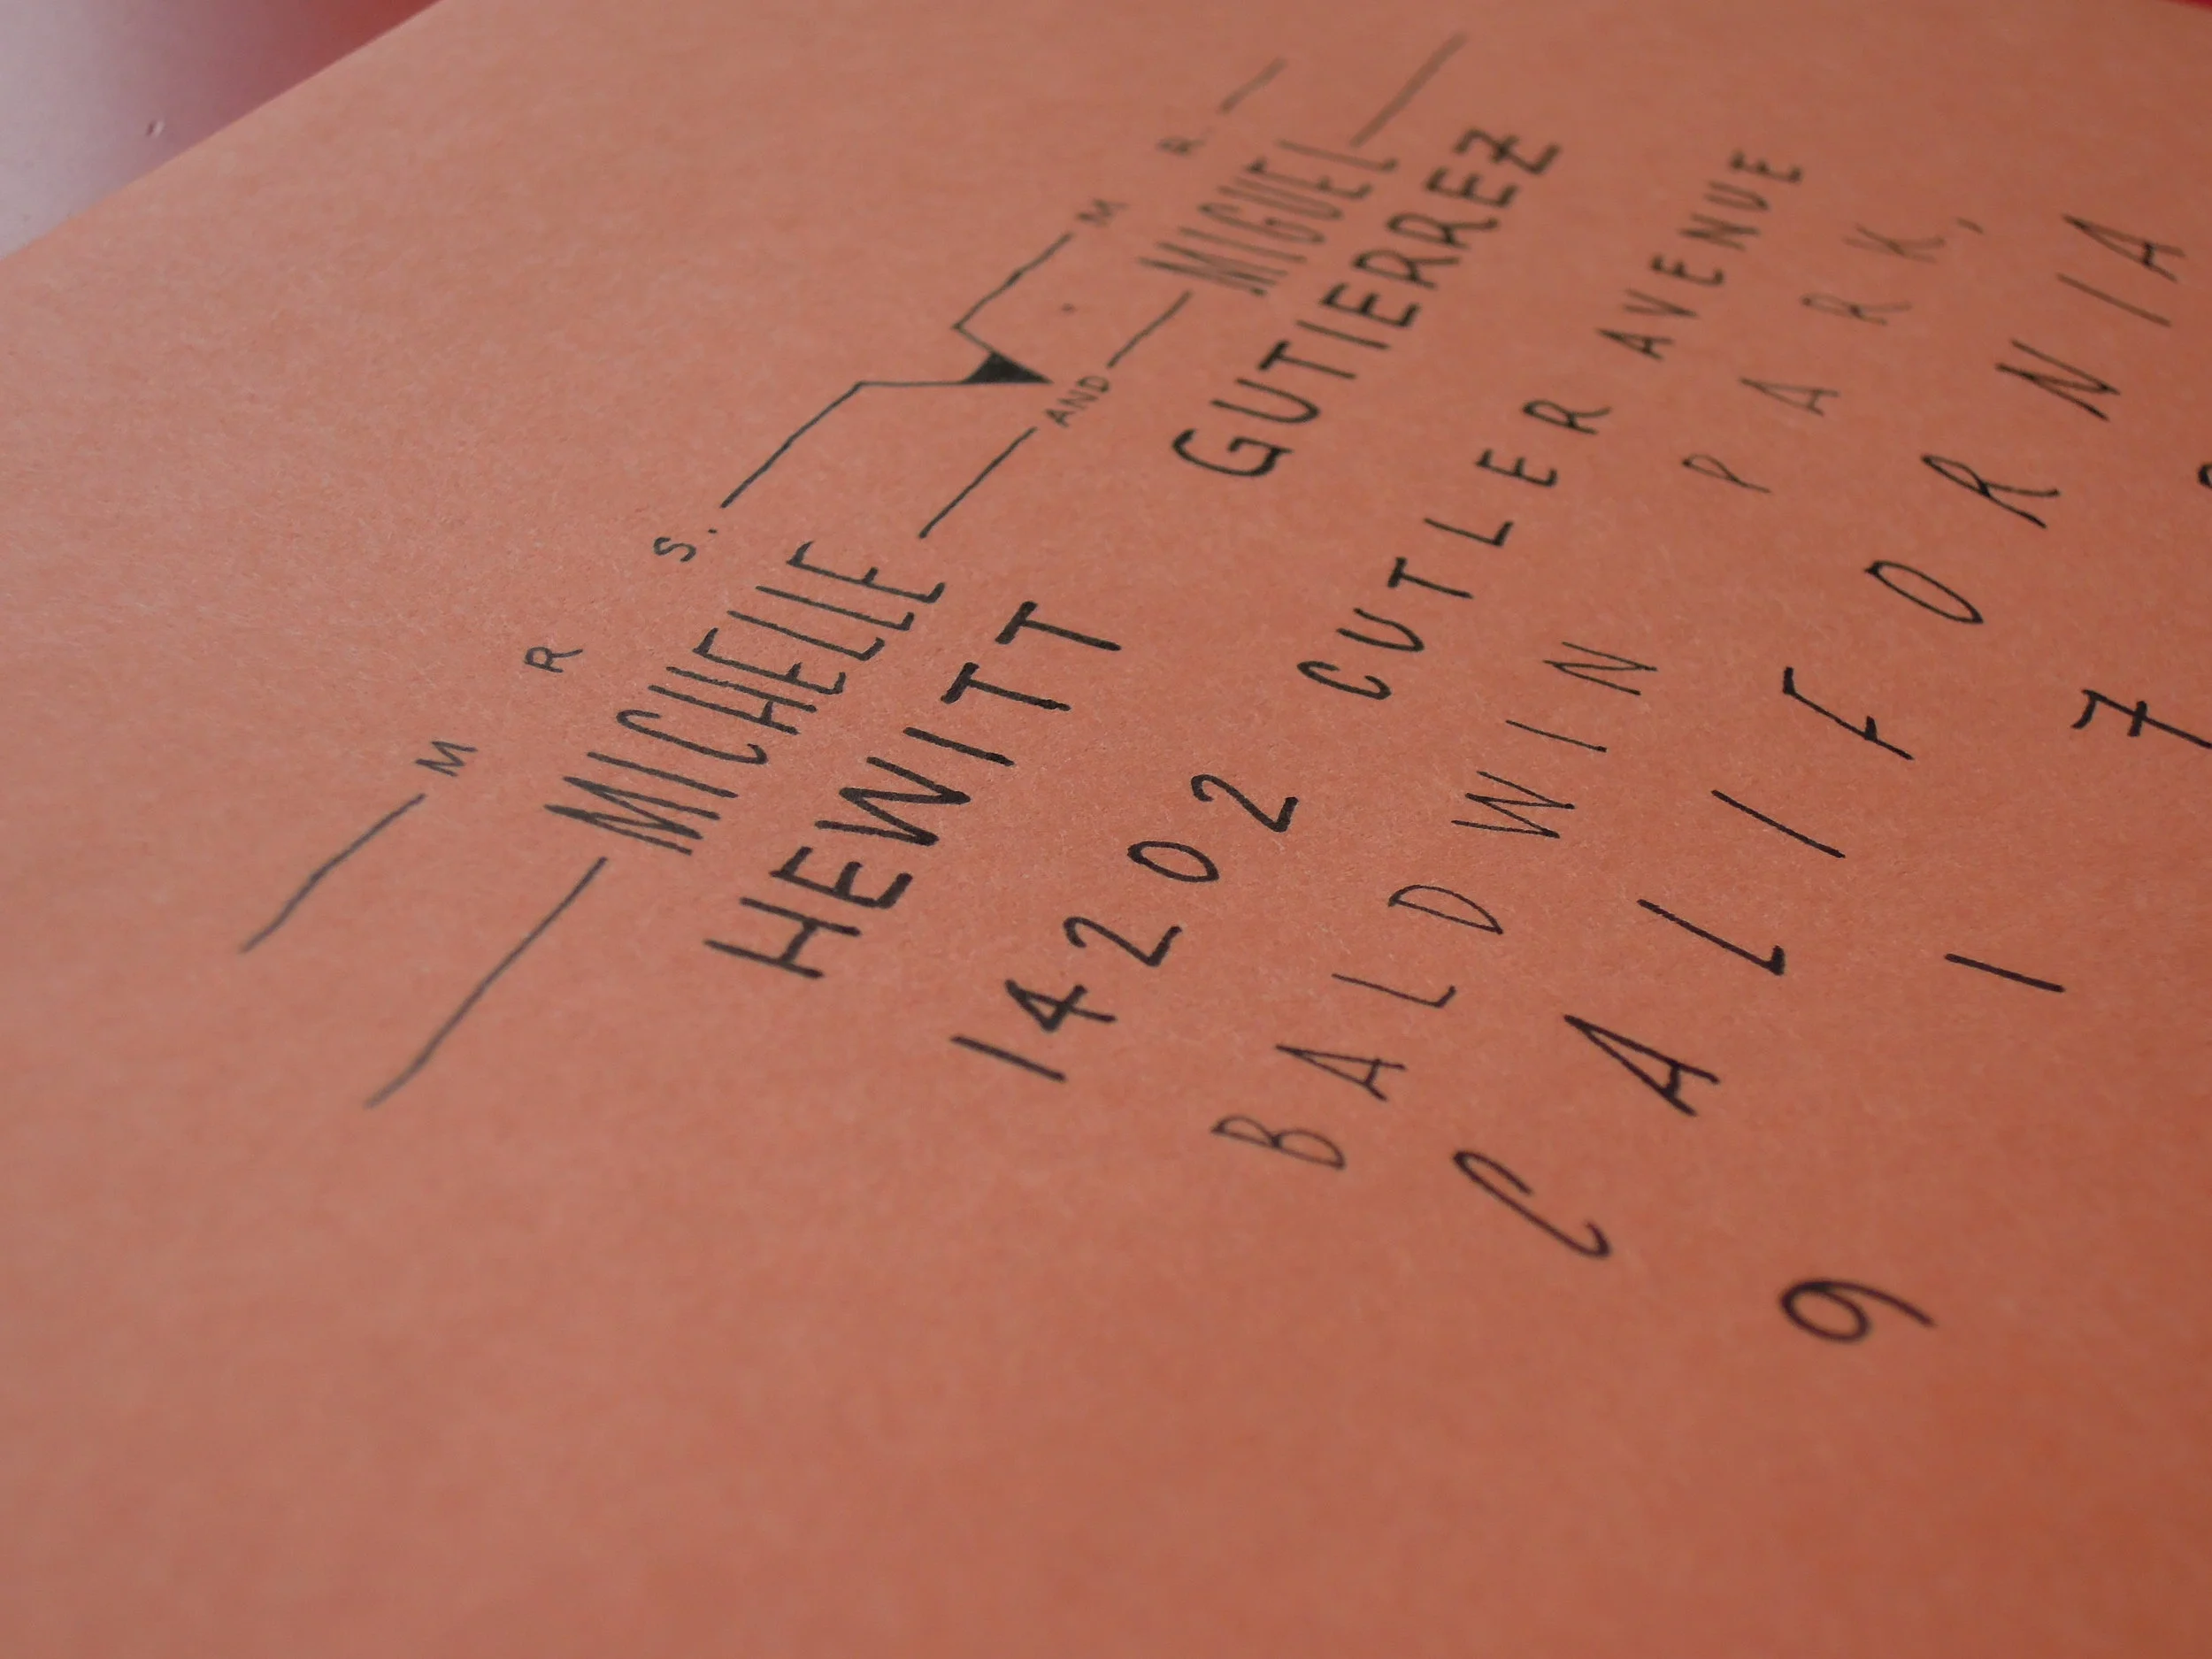 MRS. MR.
MICHELLE AND MIGUEL
HEWITT GUTIERREZ
14202 CUTLER AVENUE
BALDWIN PARK,
CALIFORNIA
917